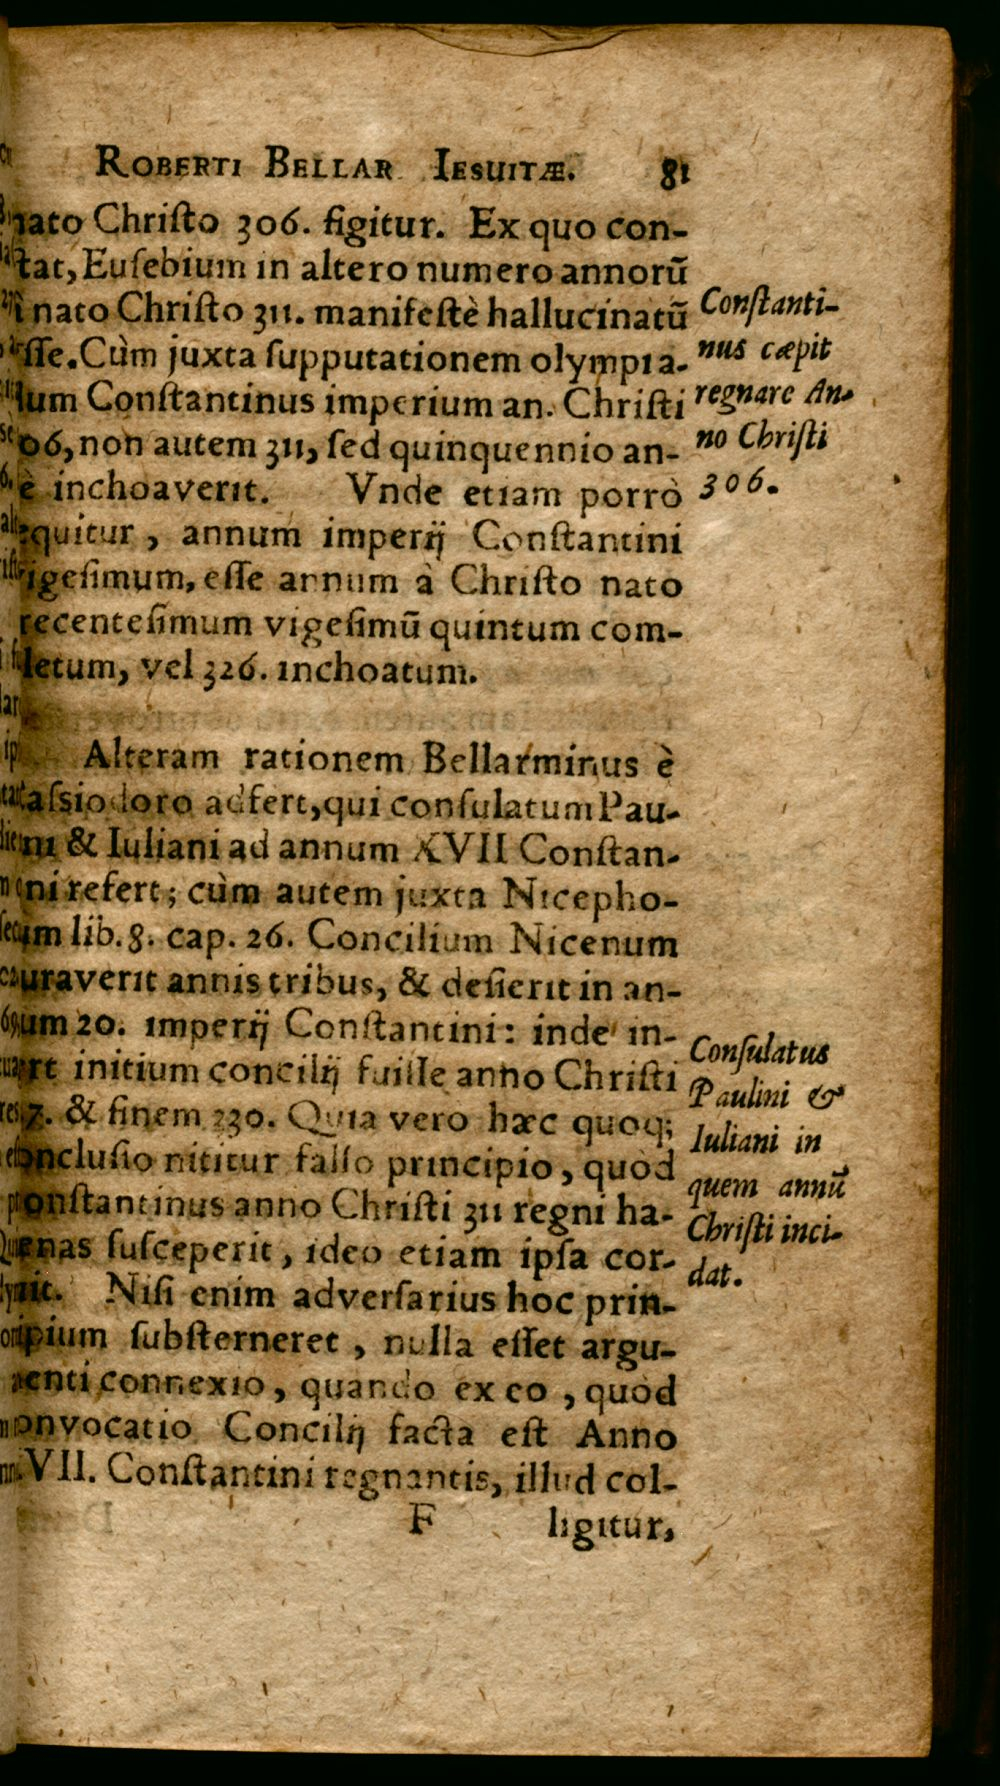 ROBERTI BELLAR. IESUITÆ. 81
nato Chriſto 306. figitur. Ex quo con-
ſtat, Euſebium in altero numero annorū
nato Chriſto 311. manifeſtè hallucinatū
eſſe. Cùm juxta ſupputationem olympia-
Conſtantinus imperium an. Chriſti
non autem 311, ſed quinquennio an-
inchoaverit. Vnde etiam porrò
annum imperij Conſtantini
eſſe annum à Chriſto nato
vigeſimū quintum com-
vel 326. inchoatum.
Conſtanti-
nus cæpit
regnare An-
no Chriſti
306.
Alteram rationem Bellarminus è
adfert, qui conſulatum Pau-
& Iuliani ad annum XVII Conſtan-
refert; cùm autem juxta Nicepho-
lib. 8. cap. 26. Concilium Nicenum
annis tribus, & deſierit in an-
20. imperij Conſtantini: inde in-
initium concilij fuiſſe anno Chriſti
& finem 230. Quia vero hæc quoq;
nititur falſo principio, quòd
anno Chriſti 311 regni ha-
ſuſceperit, ideo etiam ipſa cor-
Niſi enim adverſarius hoc prin-
ſubſterneret, nulla eſſet argu-
connexio, quando ex eo, quòd
Concilij facta eſt Anno
Conſtantini regnantis, illud col-
Conſulatus
Paulini &
Iuliani in
quem annū
Chriſti inci-
dat.
F ligitur,